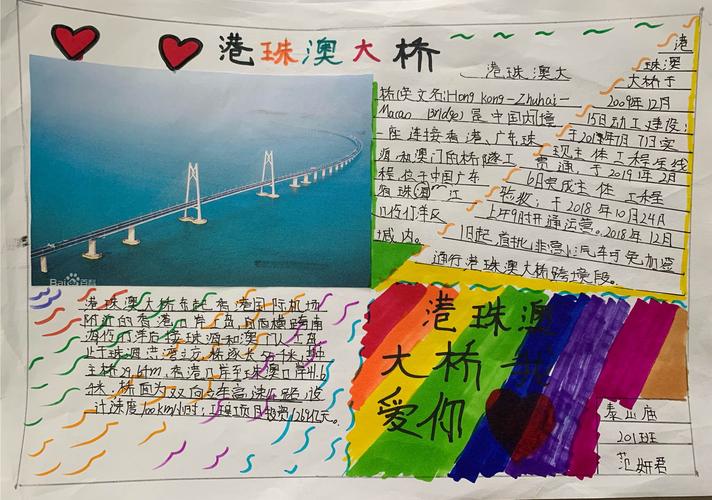 港珠澳大桥
港珠澳大
桥(英文名:Hong kong-Zhuhai-
Macao Bridge)是中国境
一座连接香港、广东珠
海和澳门的桥隧工
程,位于中国广东
珠
伶仃洋区
域内。
港
珠澳
大桥于
2009年12月
15日动工建设;
于201年7月7日实
现主体工程全线
贯通;于2019年2月
6日完成主体工程
验收;于2018年10月24日
上午9时开通运营。2018年12月
1日起,首批非营汽车可免加签
通行港珠澳大桥跨境段。
港珠澳大桥东起香港国际机场
附近的香港口岸人工岛,向西横跨南
海伶仃洋后接珠海和澳门人工岛
止于珠海洪湾立交;桥隧长55千米,
主桥29.6km、香港口岸至珠澳口岸41.6
千米,桥面为双向六车道高速公路,设
计速度100km/小时;工程项目投资1269亿元。
港珠澳
大桥我
爱你
泰山庙
201班
范妍君
Bai百科